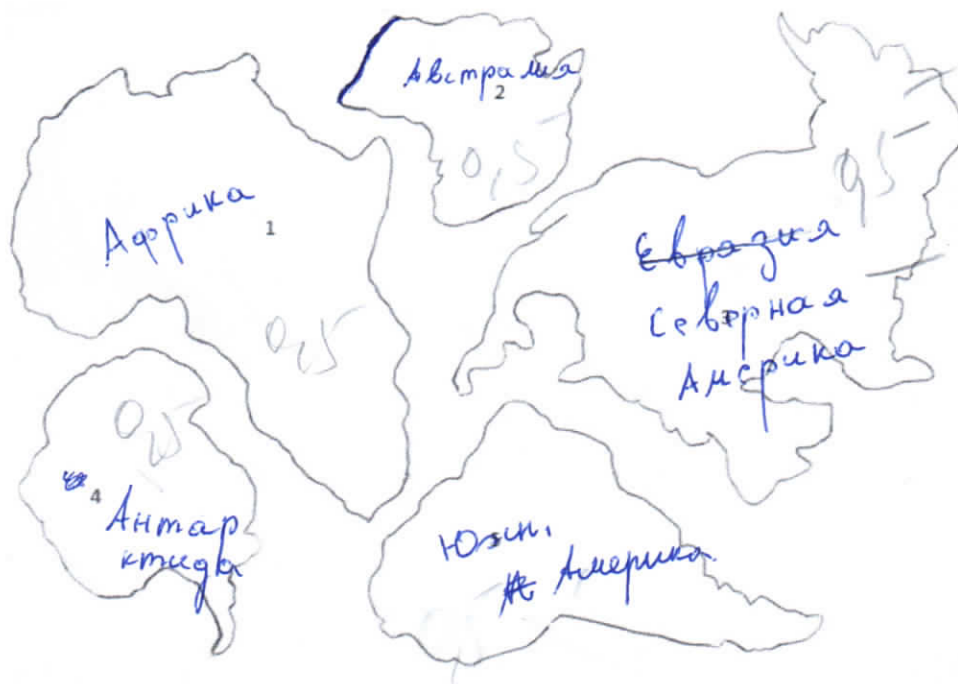 Австралия
2
0,5
Африка
1
0,5
0,5
Евразия
Северная
3
Америка
0,5
4
Антар
ктида
Южн.
Америка